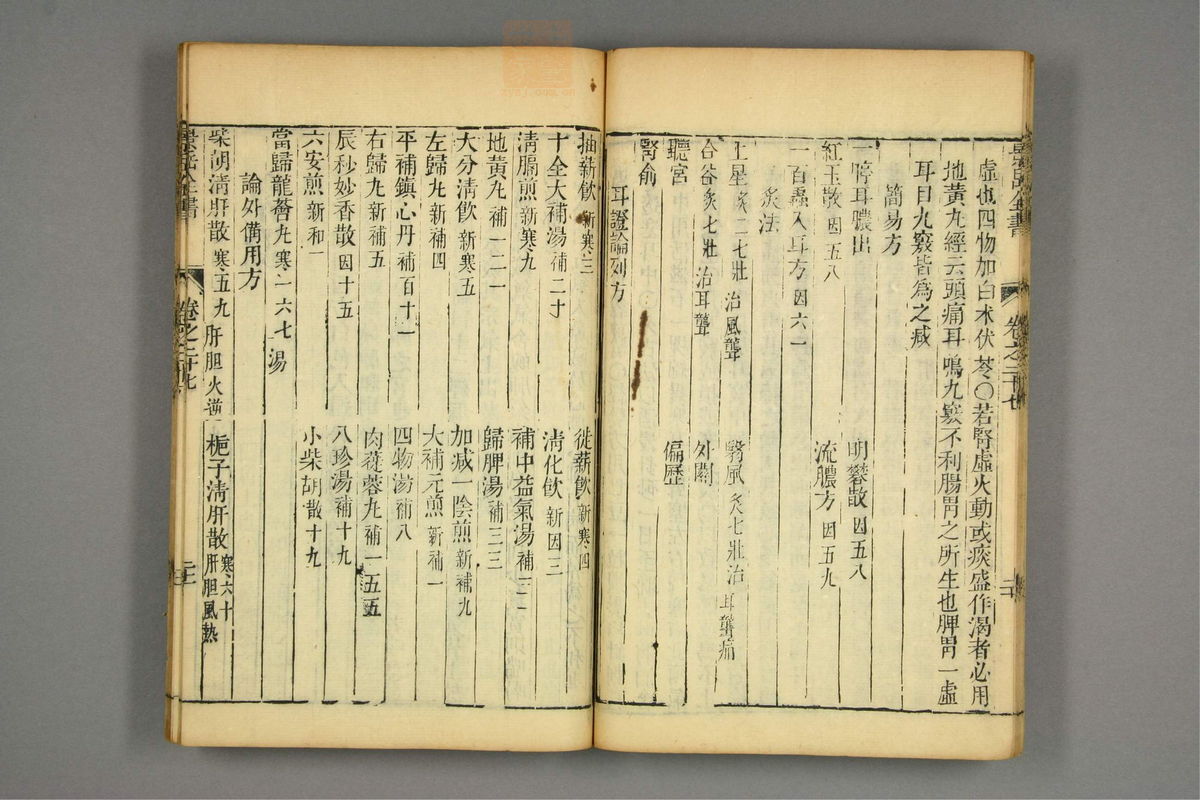 虛也四物加白朮伏苓○若腎虛火動或痰盛作渴者必用
地黃丸經云頭痛耳鳴九竅不利腸胃之所生也脾胃一虛
耳目九竅皆為之病
簡易方
停耳膿出 明礬散因五八
紅玉散因五八 流膿方因五九
百蟲入耳方因六一
灸法
上星灸二七壯治風聾 翳風灸七壯治耳聾痛
合谷灸七壯治耳聾 外關
聽宮 偏歷
腎俞
耳證論列方
抽薪飲新寒三 徙薪飲新寒四
十全大補湯補二十 清化飲新因三
清膈煎新寒九 補中益氣湯補三一
地黃丸補一二一 歸脾湯補三三
大分清飲新寒五 加減一陰煎新補九
左歸丸新補四 大補元煎新補一
平補鎮心丹補百十二 四物湯補八
右歸丸新補五 肉蓯蓉丸補一五五
辰砂妙香散因十五 八珍湯補十九
六安煎新和二 小柴胡散十九
當歸龍薈丸寒一六七 湯
論外備用方
柴胡清肝散寒五九肝胆火逆 梔子清肝散寒六十肝胆風熱
卷之二十七
卷之二十七